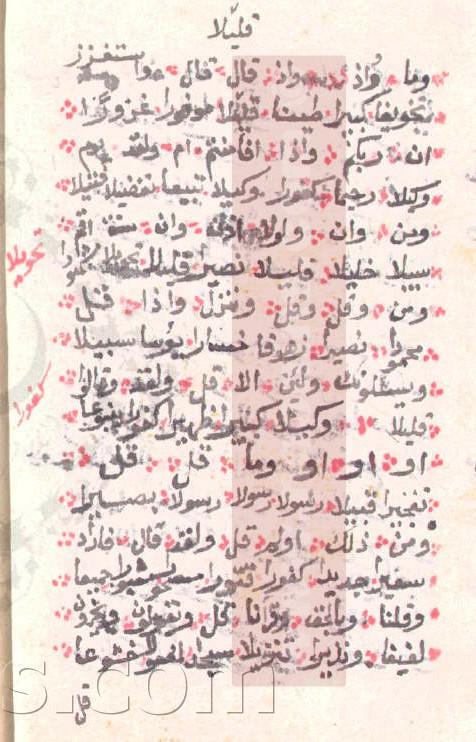 قليلا
وما واذ واذ قال قال واستفزز
تخويفا كبيرا طينا قليلا موفورا غرورا
ان ربكم واذا افامنتم ام ولقد يوم
وكيلا رحيما كفورا وكيلا تبيعا تفضيلا فتيلا
ومن وان ولولا اذا وان سنة اقم
سبيلا خليلا قليلا نصيرا قليلا
تحويلا
ومن وقل وقل وننزل واذا قل
محمودا نصيرا زهوقا خسارا يؤسا سبيلا
ويسئلونك ولئن الا قل ولقد وقالوا
كفورا
قليلا وكيلا كبيرا ظهيرا كفورا ينبوعا
او او او وما قل قل
تفجيرا قبيلا رسولا رسولا رسولا بصيرا
ومن ذلك اولم قل ولقد قال فاراد
سعيرا جديدا كفورا قتورا مسحورا مثبورا جميعا
وقلنا وبالحق وقرانا قل ويقولون ويخرون
لفيفا ونذيرا تنزيلا سجدا لمفعولا خشوعا
قل
s.com